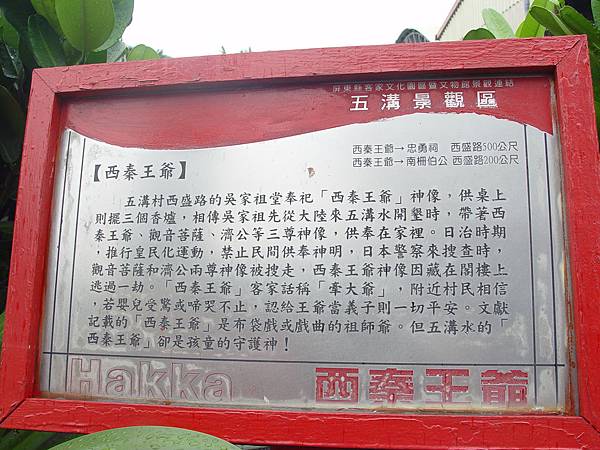 屏東縣客家文化園區暨文物館景觀連結
五溝景觀區
西秦王爺→忠勇祠 西盛路500公尺
西秦王爺→南柵伯公 西盛路200公尺
【西秦王爺】
五溝村西盛路的吳家祖堂奉祀「西秦王爺」神像，供桌上
則擺三個香爐，相傳吳家祖先從大陸來五溝水開墾時，帶著西
秦王爺、觀音菩薩、濟公等三尊神像，供奉在家裡。日治時期
，推行皇民化運動，禁止民間供奉神明，日本警察來搜查時，
觀音菩薩和濟公兩尊神像被搜走，西秦王爺神像因藏在閣樓上
逃過一劫。「西秦王爺」客家話稱「牽大爺」，附近村民相信
，若嬰兒受驚或啼哭不止，認給王爺當義子則一切平安。文獻
記載的「西秦王爺」是布袋戲或戲曲的祖師爺。但五溝水的「
西秦王爺」卻是孩童的守護神！
Hakka 西秦王爺